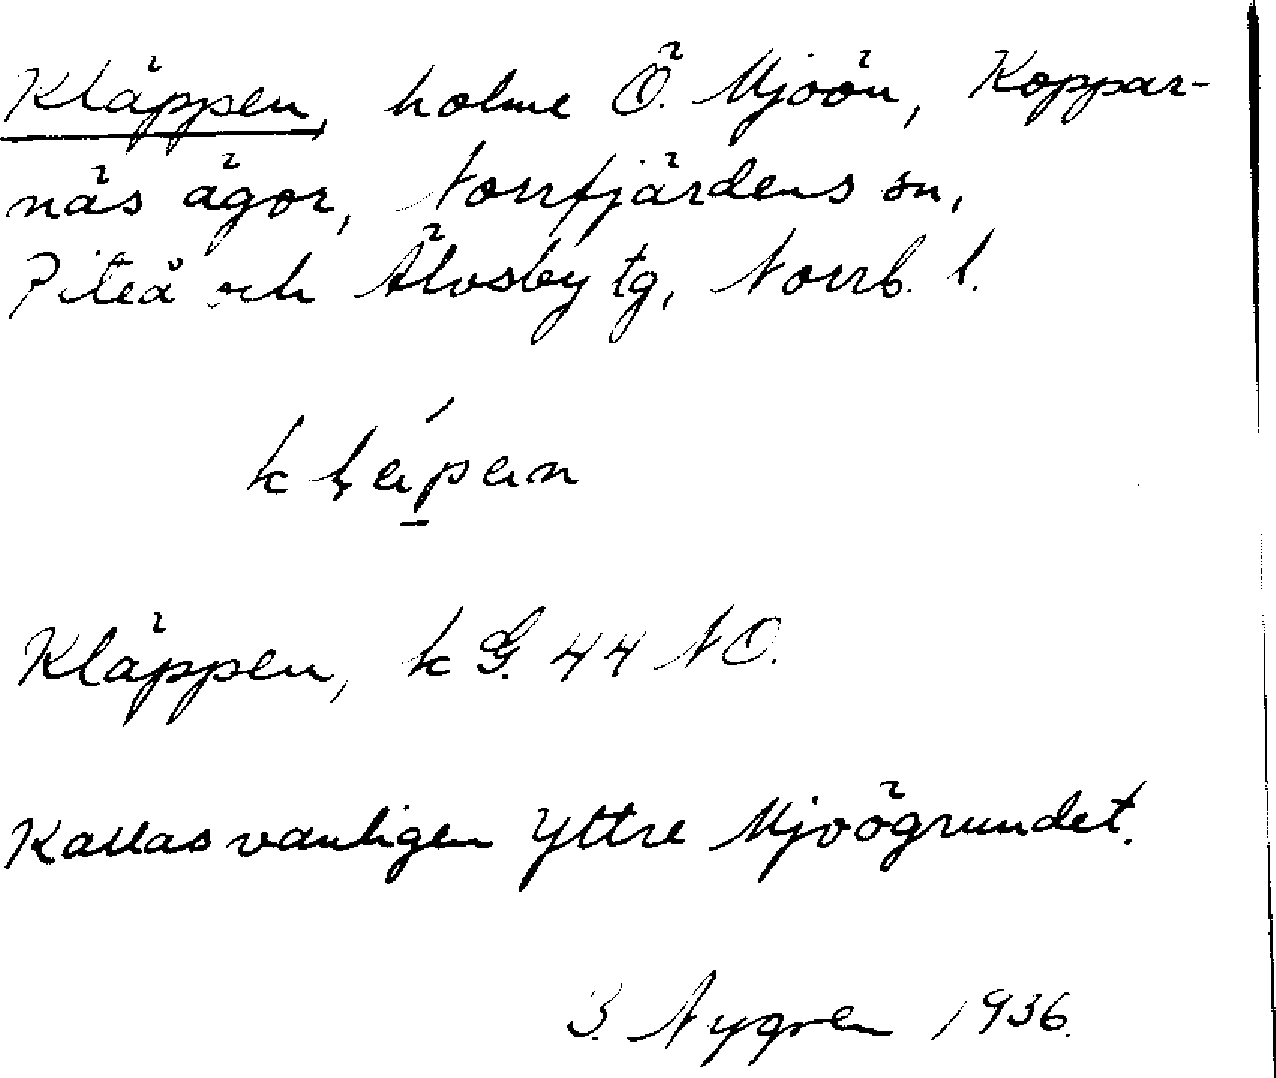 Kläppen, holme Ö. Mjoön, Koppar-
näs ägor, Norrfjärdens sn,
Piteå och Älvsby tg, Norrb. l.
Kläppen, k G. 44 NO.
Kallas vanligen Yttre Mjoögrundet.
B. Nygren 1936.